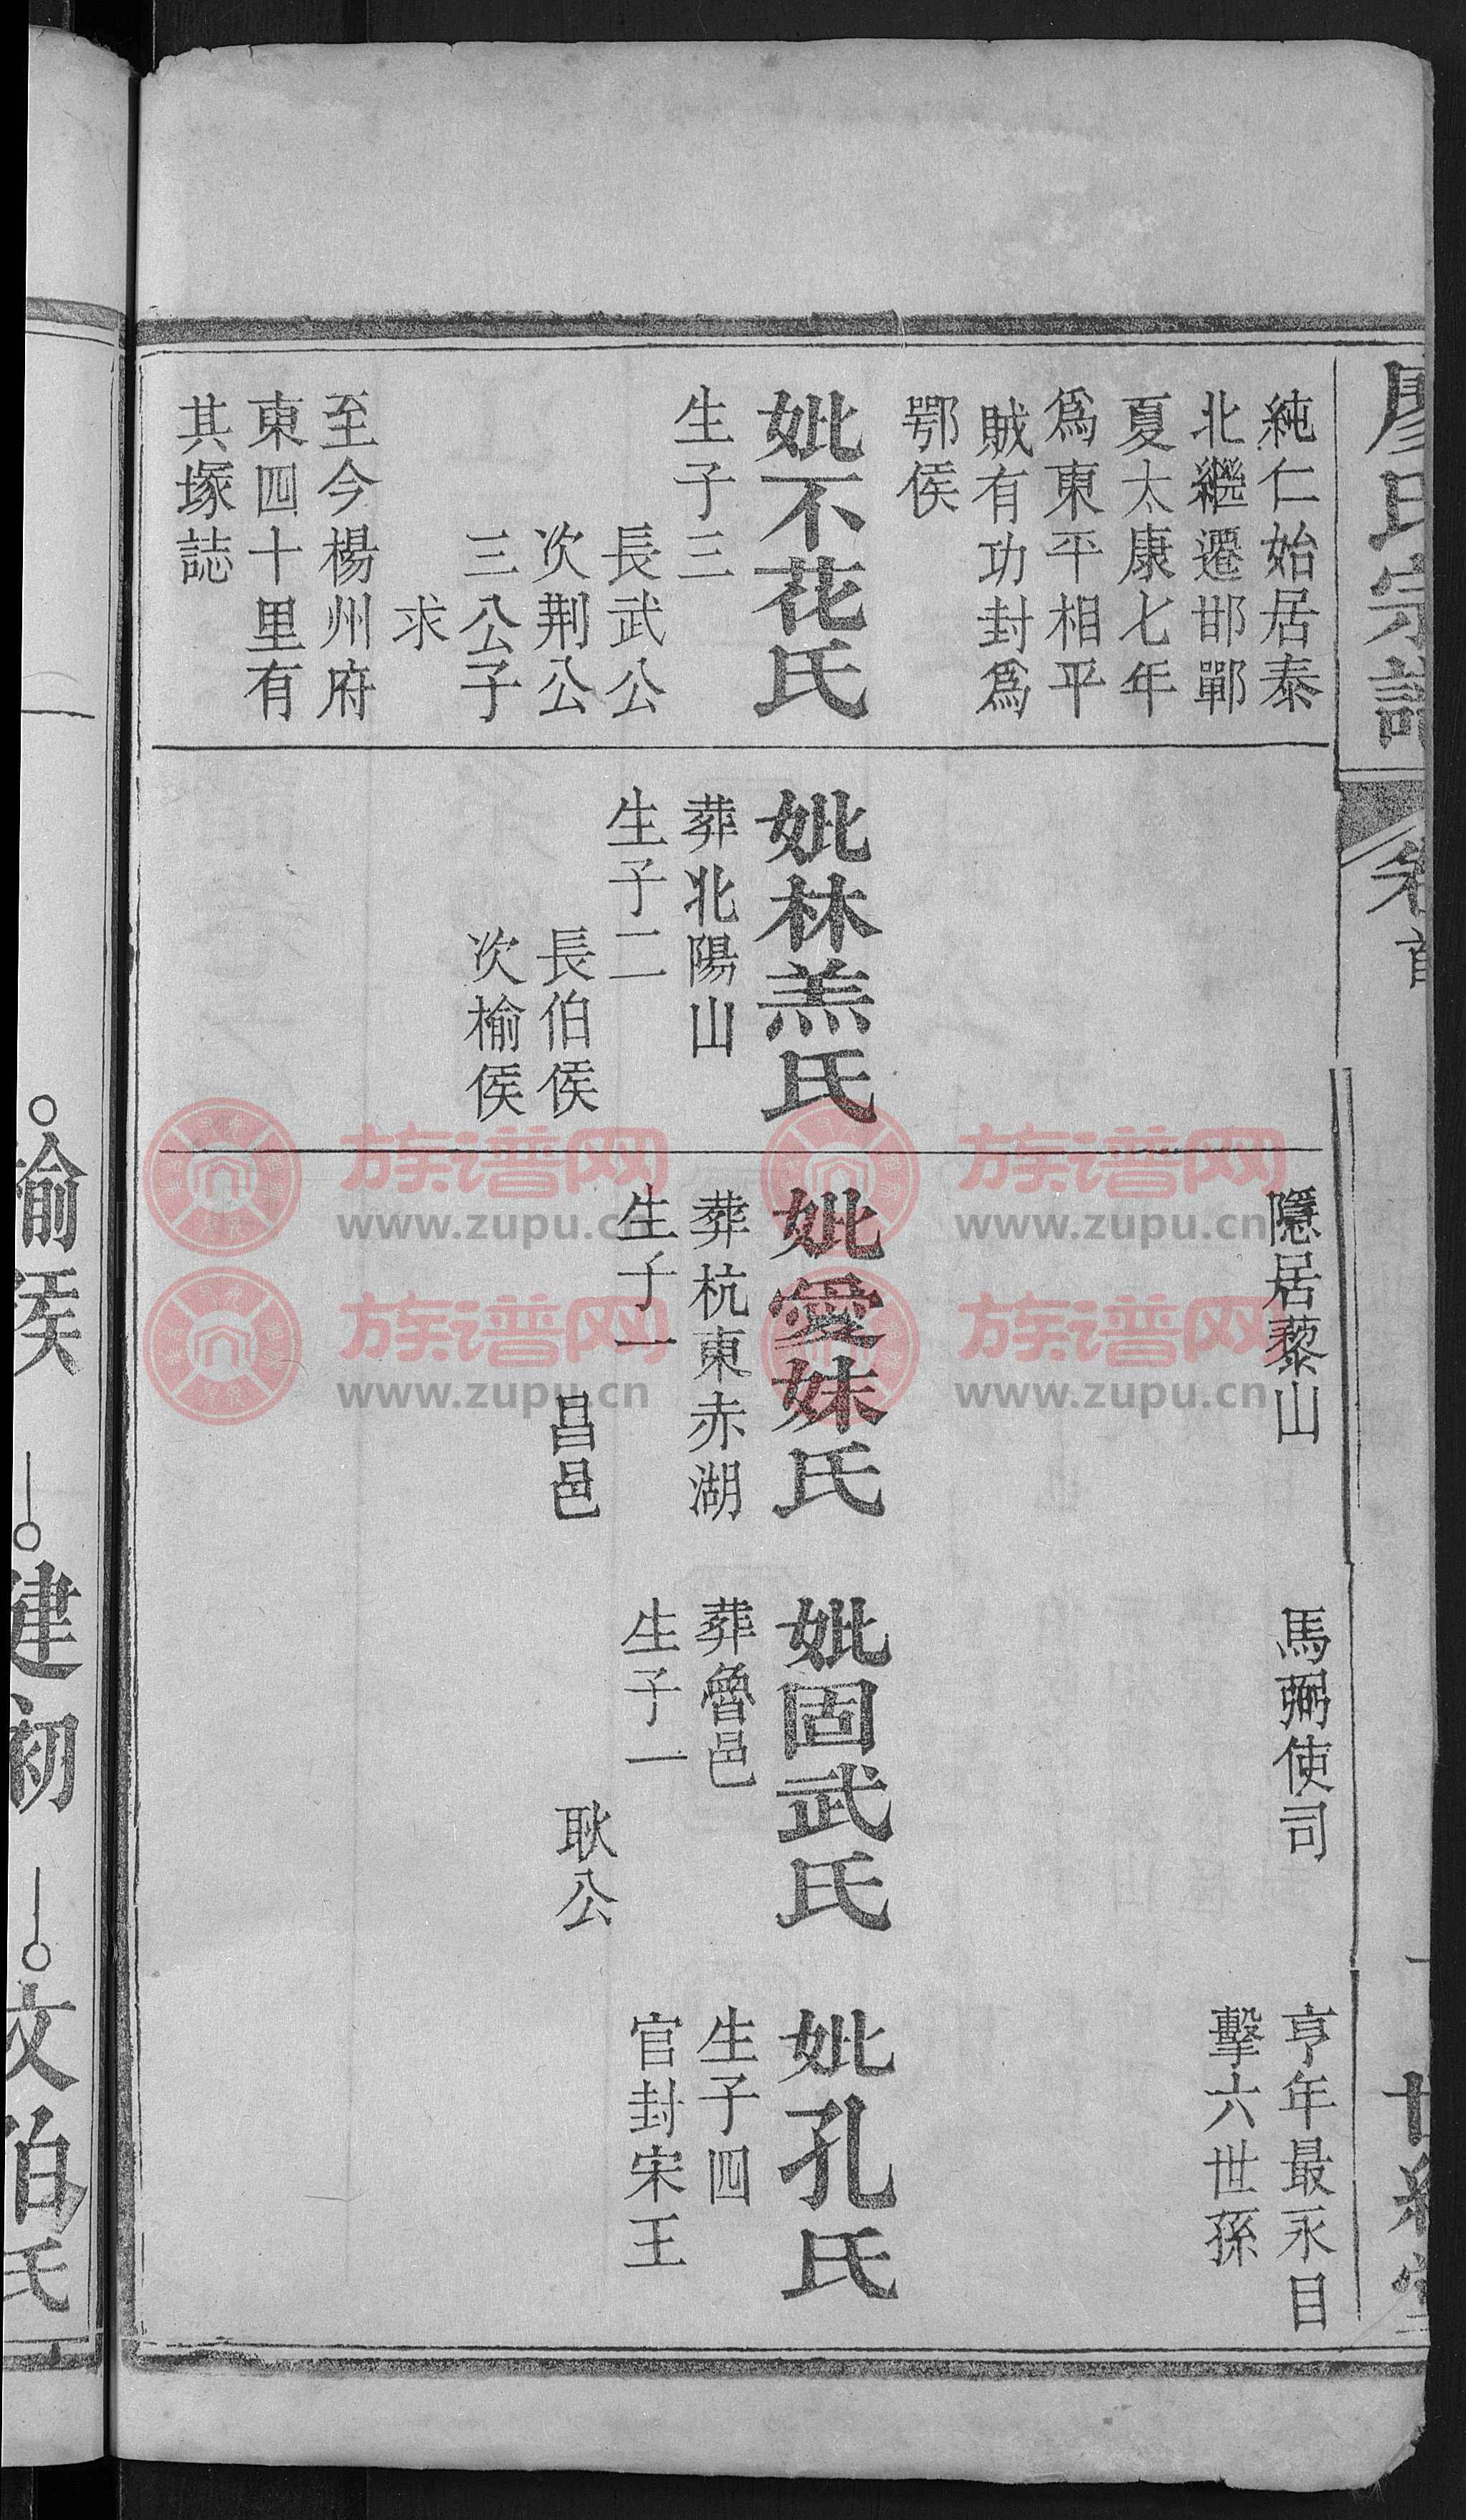 廖氏宗譜
卷首
世綵堂
純仁始居泰
北繼遷邯鄲
夏太康七年
爲東平相平
賊有功封爲
鄂侯
妣不花氏
生子三
長武公
次荆公
三公子
求
至今楊州府
東四十里有
其塚誌
妣林羔氏
葬北陽山
生子二
長伯侯
次榆侯
隱居藜山
妣愛妹氏
葬杭東赤湖
生子一
昌邑
馬弼使司
妣固武氏
葬魯邑
生子一
耿公
亨年最永目
擊六世孫
妣孔氏
生子四
官封宋王
榆侯
建初
文伯氏
族谱网
www.zupu.cn
族谱网
www.zupu.cn
族谱网
www.zupu.cn
族谱网
www.zupu.cn